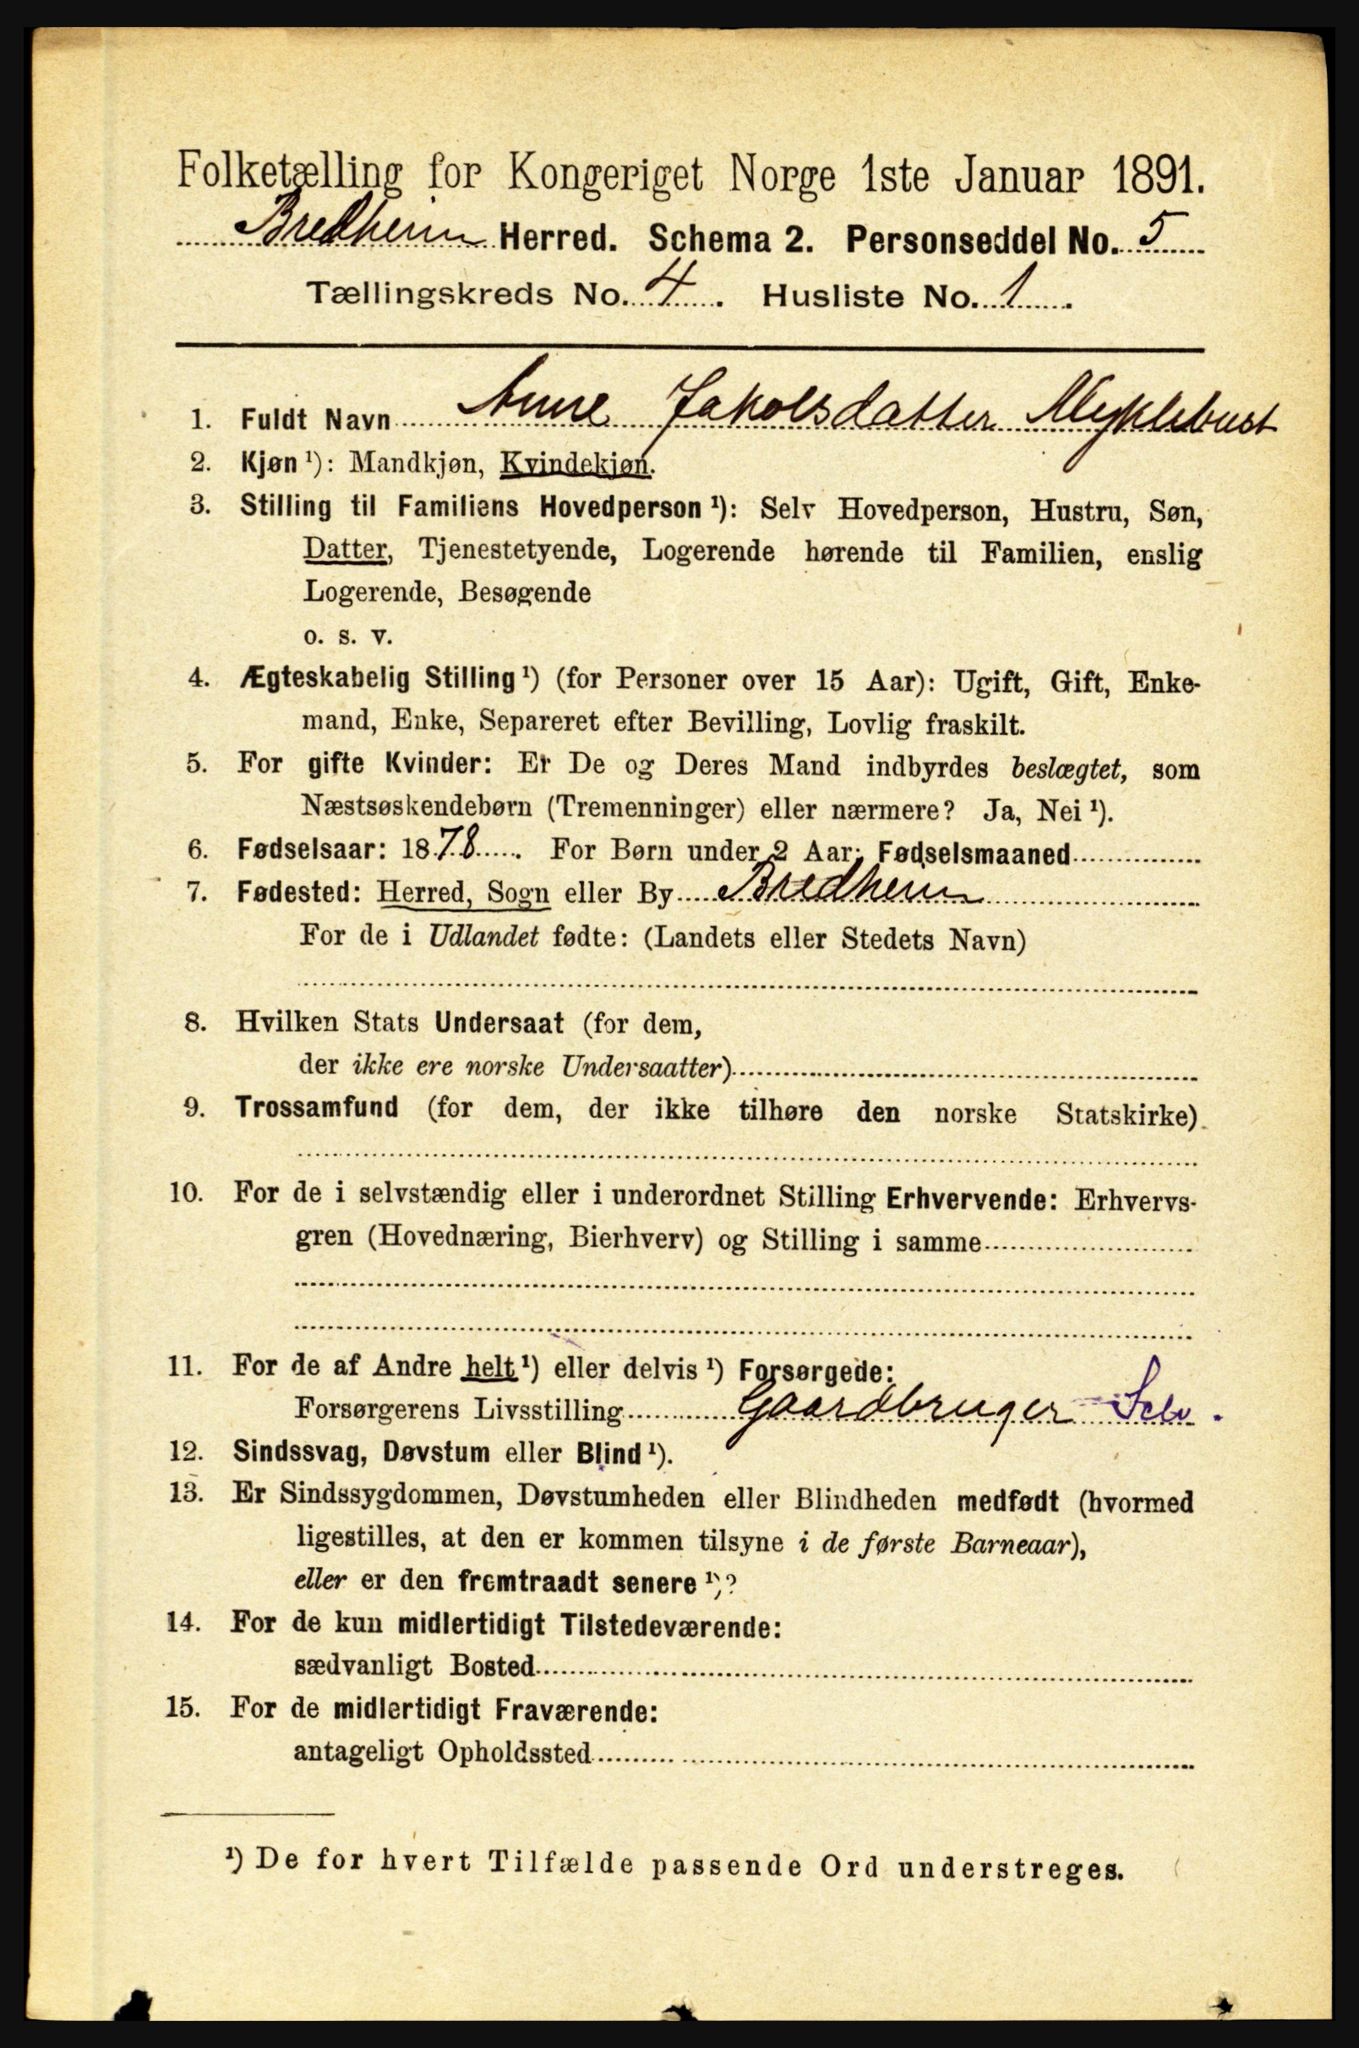 Folketælling for Kongeriget Norge 1ste Januar 1891.
Bredheim Herred. Schema 2. Personseddel No. 5
Tællingskreds No. 4. Husliste No. 1.
1. Fuldt Navn Anne Jakobsdatter Myklebust
2. Kjøn ¹): Mandkjøn, Kvindekjøn.
3. Stilling til Familiens Hovedperson ¹): Selv Hovedperson, Hustru, Søn,
Datter, Tjenestetyende, Logerende hørende til Familien, enslig
Logerende, Besøgende
o. s. v.
4. Ægteskabelig Stilling ¹) (for Personer over 15 Aar): Ugift, Gift, Enke-
mand, Enke, Separeret efter Bevilling, Lovlig fraskilt.
5. For gifte Kvinder: Er De og Deres Mand indbyrdes beslægtet, som
Næstsøskendebørn (Tremenninger) eller nærmere? Ja, Nei ¹).
6. Fødselsaar: 1878. For Børn under 2 Aar: Fødselsmaaned
7. Fødested: Herred, Sogn eller By Bredheim
For de i Udlandet fødte: (Landets eller Stedets Navn)
8. Hvilken Stats Undersaat (for dem,
der ikke ere norske Undersaatter)
9. Trossamfund (for dem, der ikke tilhøre den norske Statskirke)
10. For de i selvstændig eller i underordnet Stilling Erhvervende: Erhvervs-
gren (Hovednæring, Bierhverv) og Stilling i samme
11. For de af Andre helt ¹) eller delvis ¹) Forsørgede:
Forsørgerens Livsstilling Gaardbruger Selv.
12. Sindssvag, Døvstum eller Blind ¹).
13. Er Sindssygdommen, Døvstumheden eller Blindheden medfødt (hvormed
ligestilles, at den er kommen tilsyne i de første Barneaar),
eller er den fremtraadt senere ¹)?
14. For de kun midlertidigt Tilstedeværende:
sædvanligt Bosted
15. For de midlertidigt Fraværende:
antageligt Opholdssted
¹) De for hvert Tilfælde passende Ord understreges.